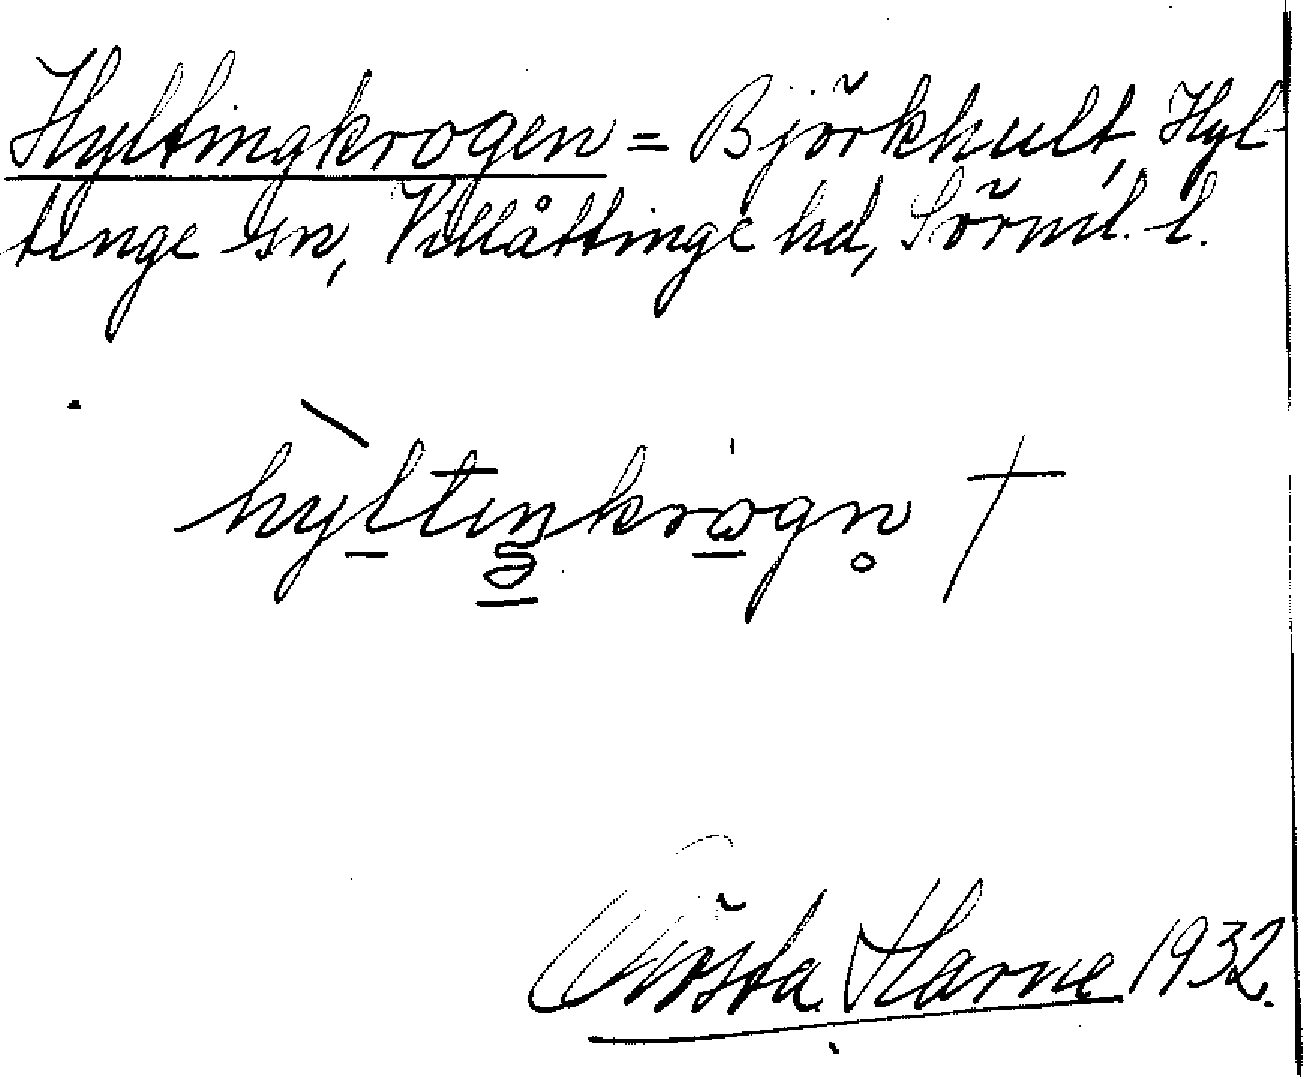 Hyltingkrogen = Björkhult, Hyl-
tinge sn, Villåttinge hd, Sörml. l.
hyltiŋkrogn̥ †
Gösta Harne 1932.